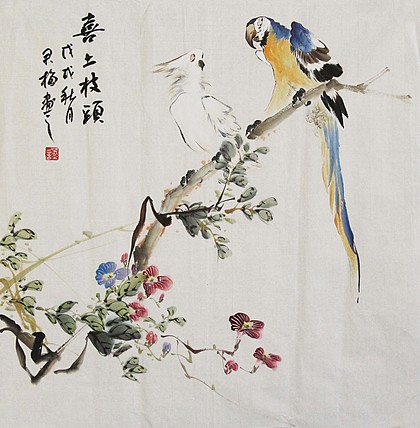 喜上枝頭
戊戌秋月
君梅畫之